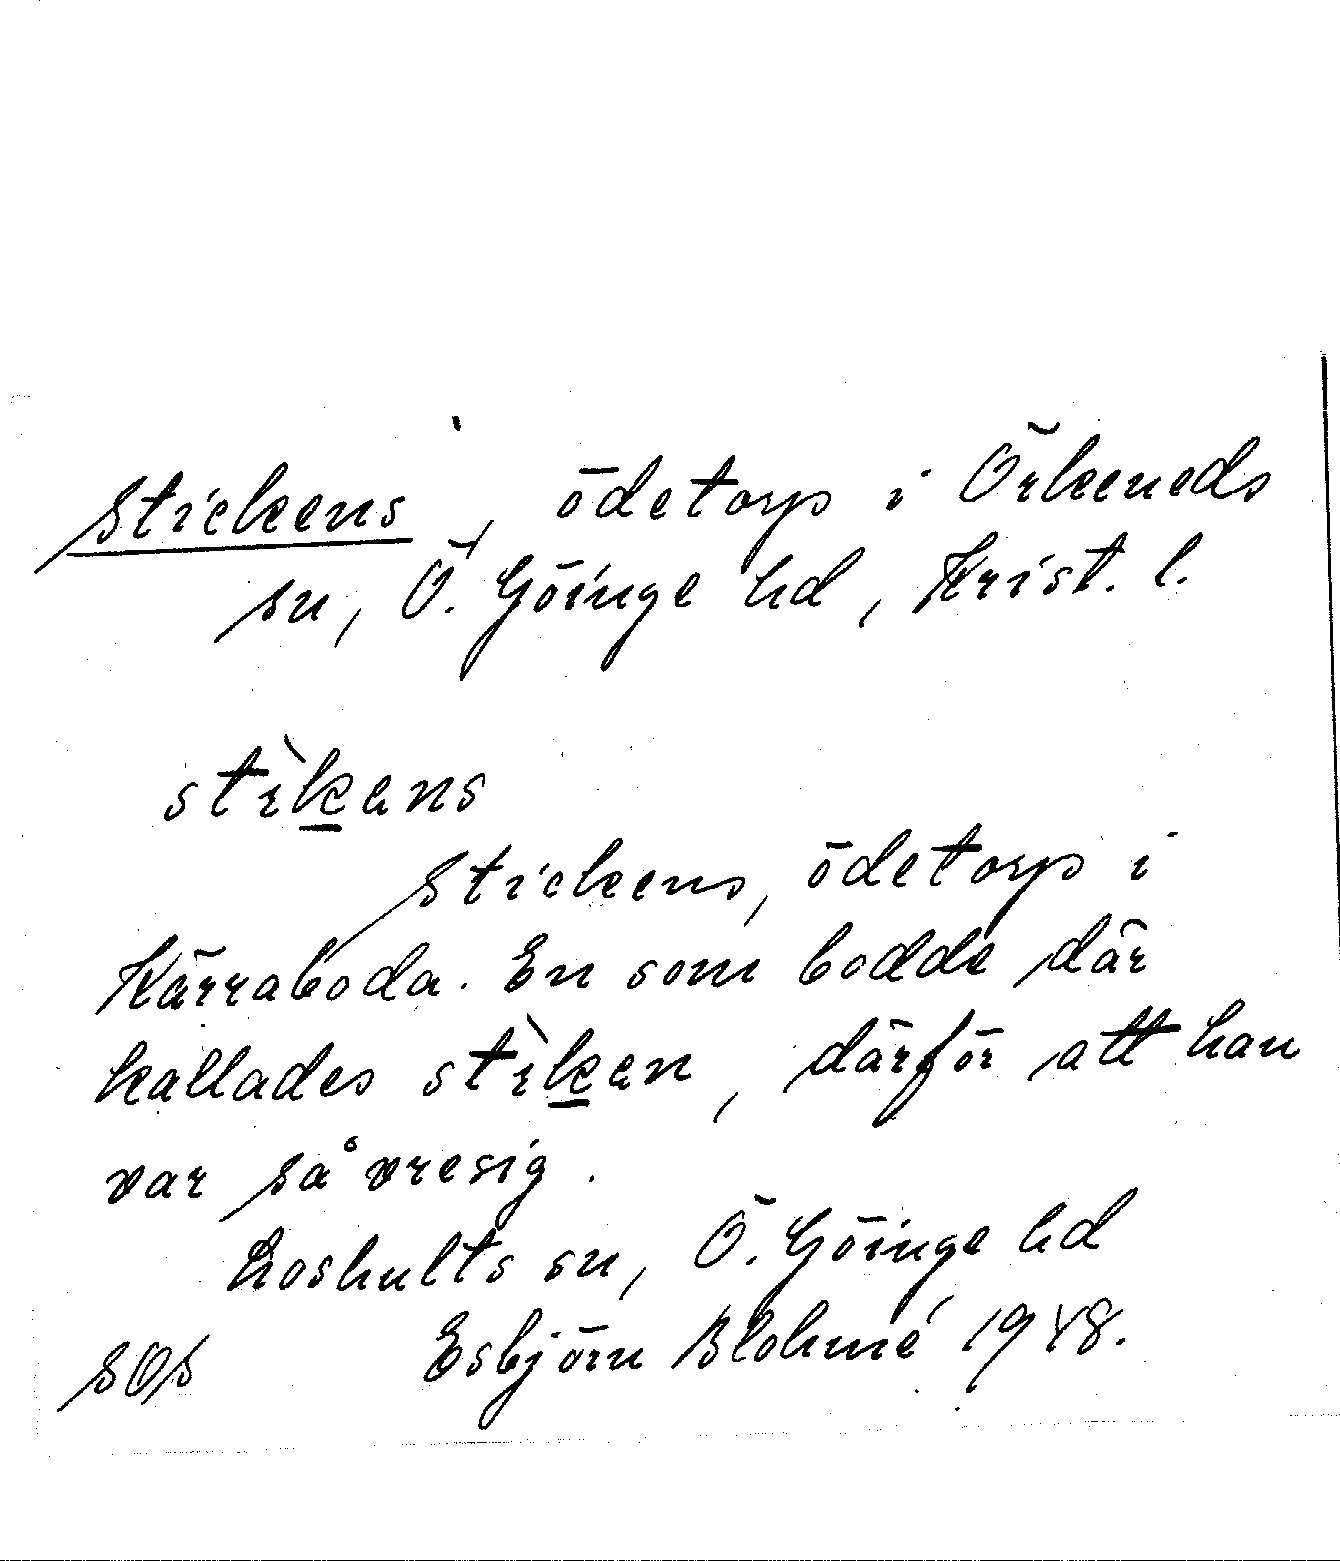 Stickens, ödetorp i Örkeneds
sn, Ö. Göinge hd, Krist. l.
stìk̲ans
Stickens, ödetorp i
Kärraboda. En som bodde där
kallades stìk̲en, därför att han
var så vresig.
Loshults sn, Ö. Göinge hd
SOS Esbjörn Blohmé 1948.